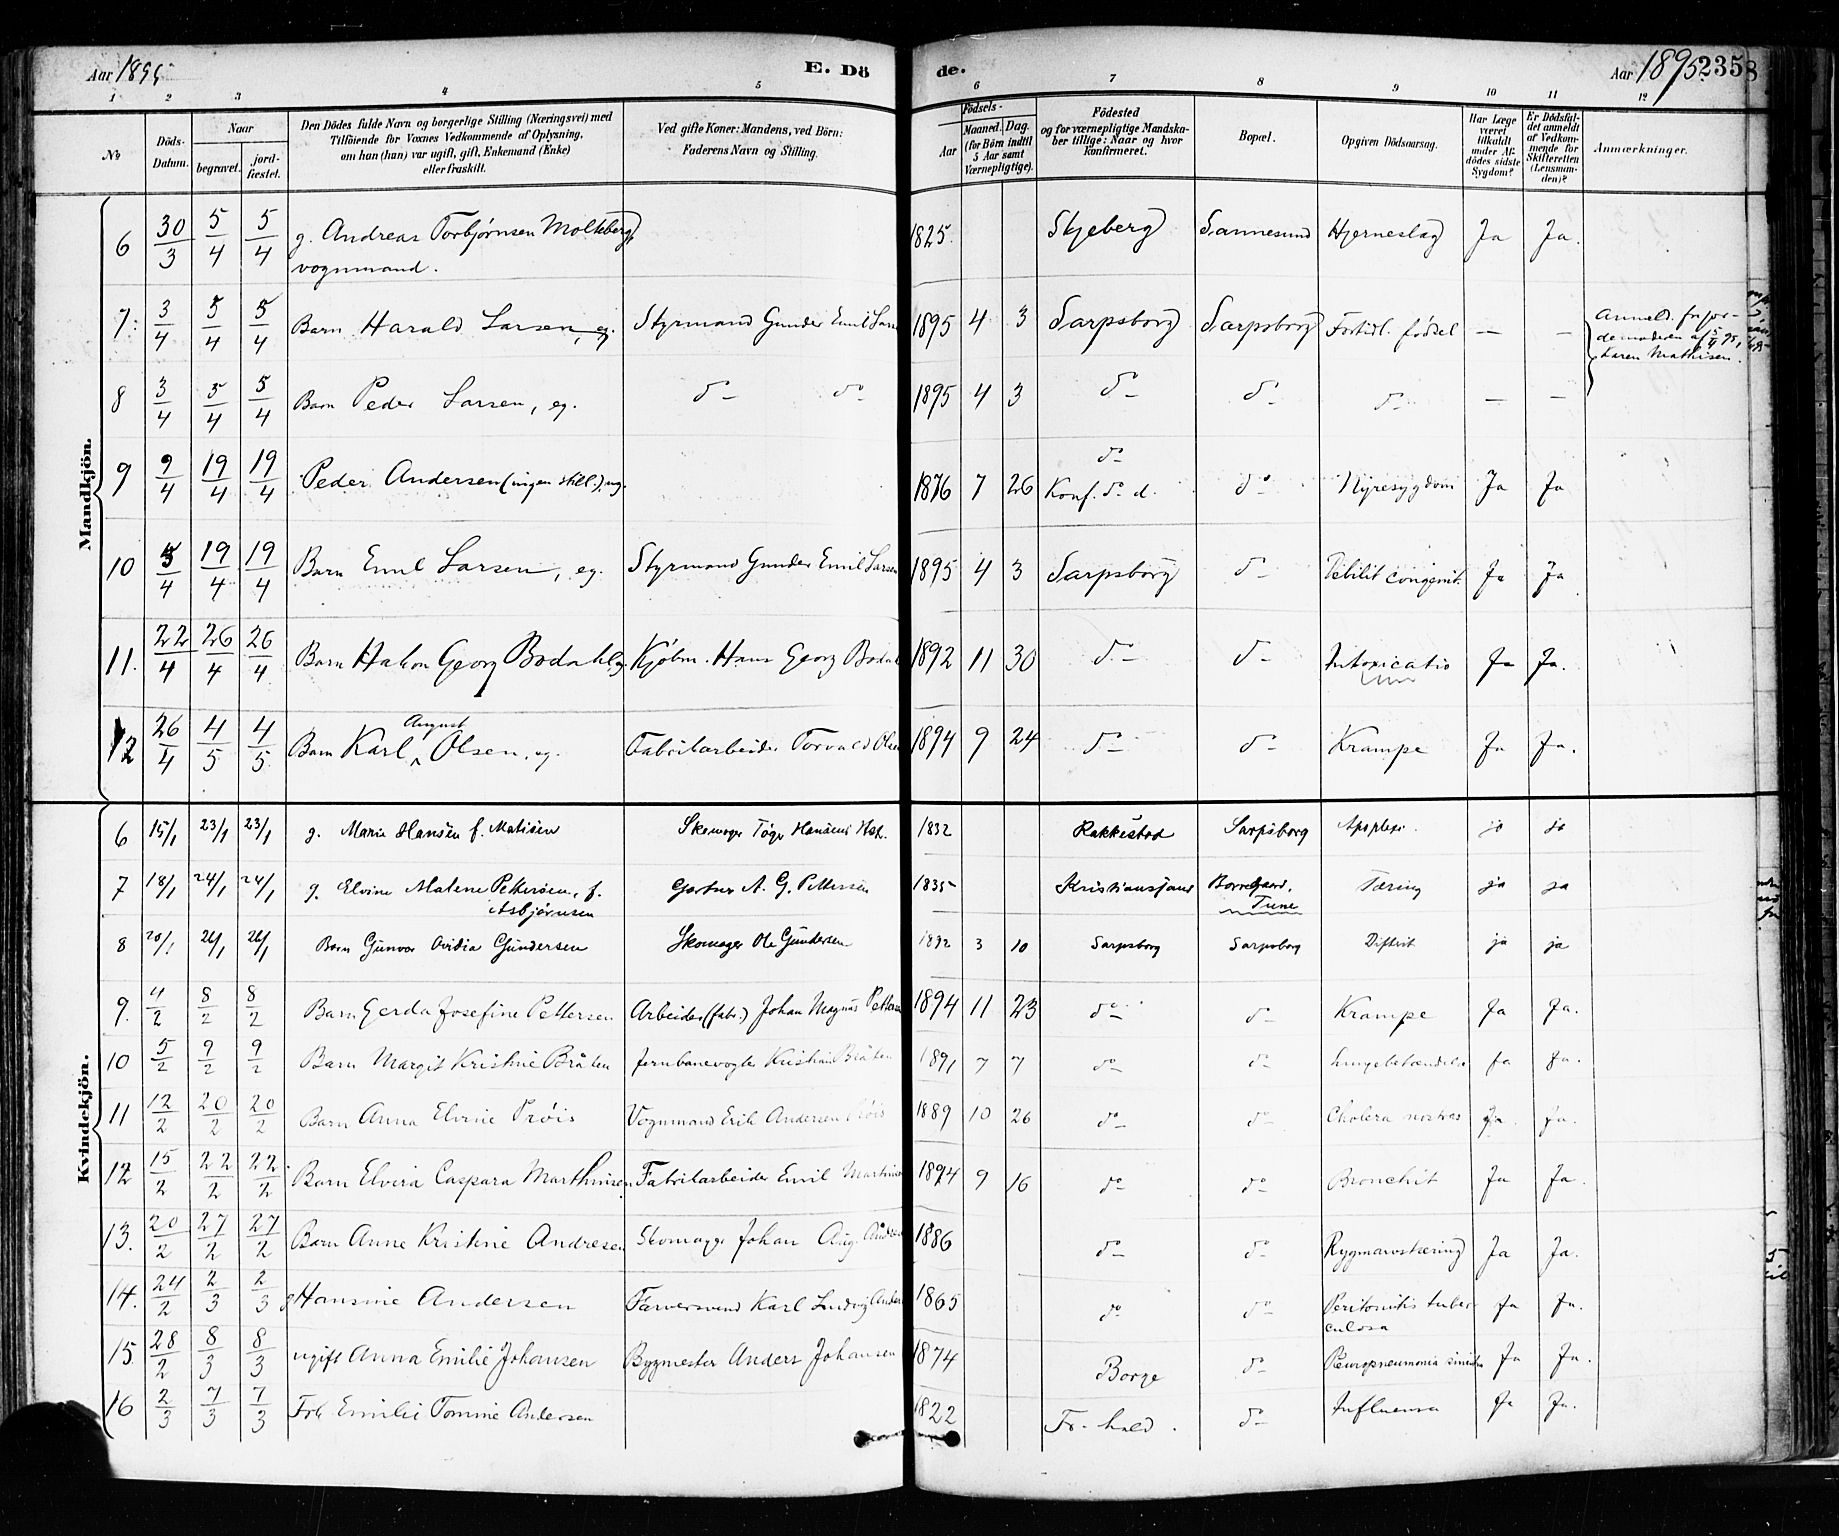 Aar 1895
E. Dö
de.
Aar 1895 235
8
1 2 3 4 5 6 7 8 9 10 11 12
No
Döds-Datum.
Naar
begravet.
jord-fæstet.
Den Dödes fulde Navn og borgerlige Stilling (Næringsvei) med
Tilföiende for Voxnes Vedkommende af Oplysning,
om han (hun) var ugift, gift, Enkemand (Enke)
eller fraskilt.
Ved gifte Koner: Mandens, ved Börn:
Faderens Navn og Stilling.
Födsels-
Aar
Maaned. Dag.
(for Börn indtil
5 Aar samt
Værnepligtige).
Födested
og for værnepligtige Mandska-
ber tillige: Naar og hvor
konfirmeret.
Bopæl.
Opgiven Dödsaarsag.
Har Læge
været
tilkaldt
under Af-
dödes sidste
Sygdom?
Er Dödsfal-
det anmeldt
af Vedkom-
mende for
Skifteretten
(Lensman-
den)?
Anmærkninger.
Mandkjön.
6 30/3 5/4 5/4 g. Andreas Torbjørnsen Molteberg, 1825. Skjeberg Sannesund Hjerneslag Ja Ja.
vognmand.
7. 3/4 5/4 5/4 Barn Harald Larsen, eg. Styrmand Gunder Emil Larsen 1895 4 3 Sarpsborg Sarpsborg Fortidl. fødsel — — Anmeld. fra jor-
demoderen af 5/4 95,
Karen Mathisen.
8 3/4 5/4 5/4 Barn Peder Larsen, eg. do do 1895 4 3 do do do — —
9 9/4 19/4 19/4 Peder Andersen (ingen still.), ug. 1876 7 26 do Konf. do d. do Nyresygdom Ja Ja
10 5/4 19/4 19/4 Barn Emil Larsen, eg. Styrmand Gunder Emil Larsen 1895 4 3 Sarpsborg do Debilit congenit. Ja Ja
11. 22/4 26/4 26/4 Barn Hakon Georg Bodahl eg. Kjøbm. Hans Georg Bodahl 1892 11 30 do do Intoxicatio Ja Ja.
12 26/4 4/5 4/5 Barn Karl August Olsen, eg. Fabrikarbeider Torvald Olsen 1894 9 24 do do Krampe Ja Ja.
Kvindekjön.
6 15/1 23/1 23/1 g. Maria Hansen f. Matisen Skomager Hansens Hst. 1832 Rakkestad Sarpsborg Apoplexi. ja ja
7 18/1 24/1 24/1 g. Elvine Malene Pettersen, f. Asbjørnsen Gartner A. G. Pettersen 1835 Kristianssand Borregaard, Tune Tæring ja ja
8 20/1 26/1 26/1 Barn Gunvor Ovidia Gundersen Skomager Ole Gundersen 1892 3 10 Sarpsborg Sarpsborg Difterit ja ja
9. 4/2 8/2 8/2 Barn Gerda Josefine Pettersen Arbeider (fabr.) Johan Magnus Pettersen 1894 11 23 do do Krampe Ja Ja.
10 5/2 9/2 9/2 Barn Margit Kristine Bråten Jernbanevogter Kristian Bråten 1891 7 7 do do Lungebetændelse Ja Ja.
11 12/2 20/2 20/2 Barn Anna Elvine Prøis Vognmand Erik Andersen Prøis 1889 10 26 do do Cholera nostras Ja. Ja.
12 15/2 22/2 22/2 Barn Elvira Caspara Marthinsen Fabrikarbeider Emil Martinsen 1894 9 16 do do Bronchit Ja Ja.
13. 20/2 27/2 27/2 Barn Anne Kristine Andresen Skomager Johan Aug. Andresen 1886 do do Rygmarvstæring Ja Ja.
14. 24/2 2/3 2/3 g Hansine Andersen Farversvend Karl Ludvig Andersen 1865 do do Peritonitis tuber-
culosa Ja Ja.
15 28/2 8/3 8/3 ugift Anna Emilie Johansen Bygmester Anders Johansen 1874 Borge do Pleuropneumonia sinistra Ja Ja.
16 2/3 7/3 7/3 Frk Emilie Tomine Andersen 1822 Fr.hald. do Influensa Ja Ja.